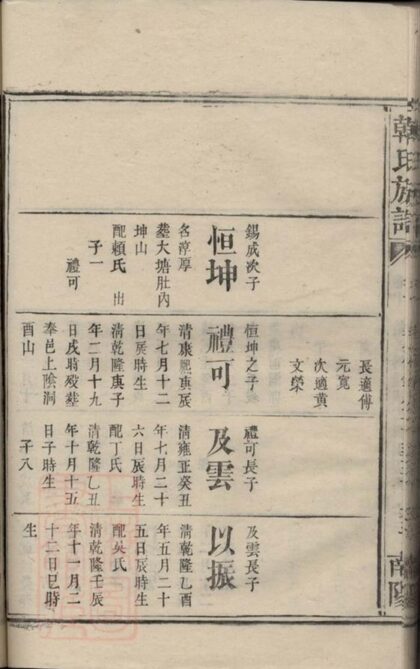 韓氏族譜
南陽
錫成次子
恒坤
名淳厚
葬大塘肚內
坤山
配賴氏 出
子一
禮可
長適傅
元寬
次適黃
文榮
恒坤之子
禮可
清康熙庚辰
年七月十二
日辰時生
清乾隆庚子
年二月十九
日戌時歿葬
奉邑上陰洞
酉山
禮可長子
及雲
清雍正癸丑
年七月二十
六日辰時生
配丁氏
清乾隆乙丑
年十月十五
日子時生
子八
及雲長子
以振
清乾隆乙酉
年五月二十
五日辰時生
配吳氏
清乾隆壬辰
年十一月二
十二日巳時
生